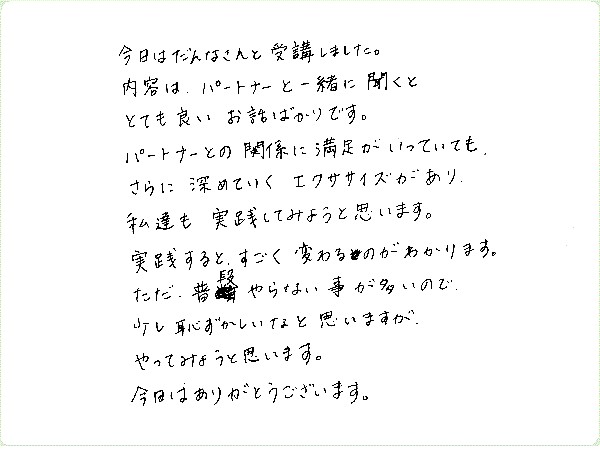 今日はだんなさんと受講しました。
内容は、パートナーと一緒に聞くと
とても良いお話ばかりです。
パートナーとの関係に満足がいっていても、
さらに深めていくエクササイズがあり、
私達も実践してみようと思います。
実践すると、すごく変わるのがわかります。
ただ、普段やらない事が多いので、
少し恥ずかしいなと思いますが、
やってみようと思います。
今日はありがとうございます。